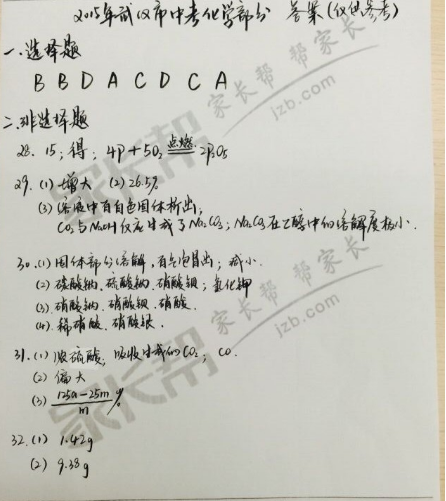 2015年武汉市中考化学部分 答案(仅供参考)
一.选择题
B B D A C D C A
二.非选择题
28. 15; 得; 4P+5O₂ 点燃 2P₂O₅
29. (1) 增大 (2) 26.5%
(3) 溶液中有白色固体析出;
CO₂与NaOH反应生成了Na₂CO₃; Na₂CO₃在乙醇中的溶解度极小.
30. (1) 固体部分溶解, 有气泡冒出; 减小.
(2) 碳酸钠、硫酸钠、硝酸钡; 氯化钾
(3) 硝酸钠、硝酸钡、硝酸.
(4) 稀硝酸、硝酸银.
31. (1) 浓硫酸; 吸收生成的CO₂; CO.
(2) 偏大
(3) (125a-25m)/m %
32. (1) 1.42g
(2) 9.38g
家长帮
jzb.com
家长帮
家长帮
jzb.com
家长帮